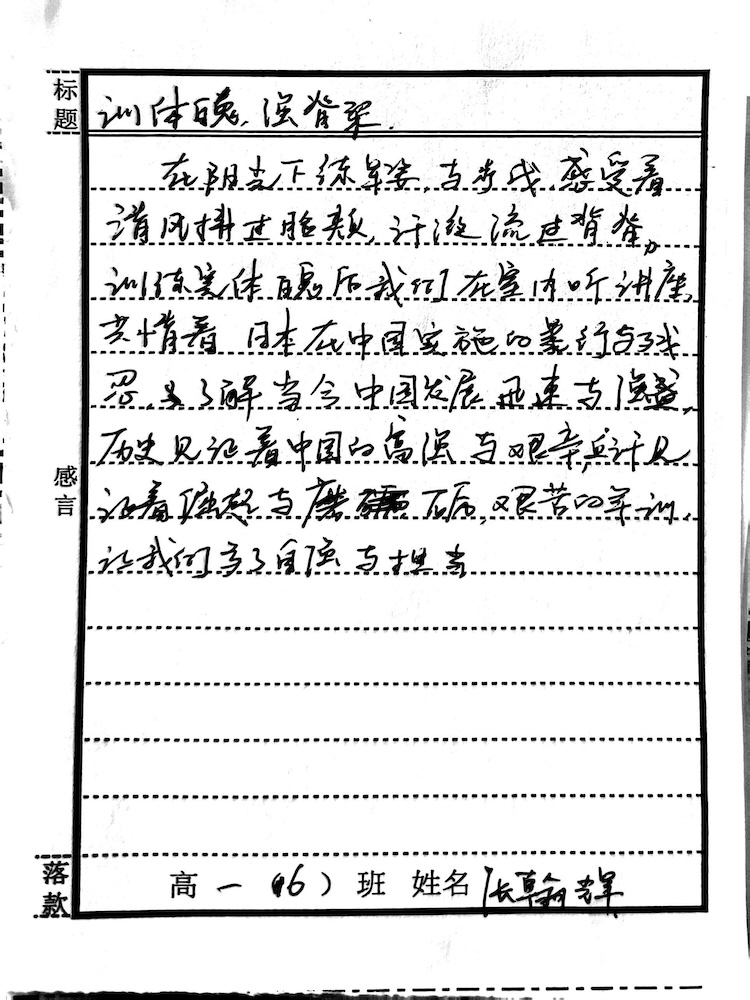 标题
训体魄,强脊梁.
在阳光下练军姿,与步伐,感受着
清风拂过脸颊,汗液流过背脊,
训练完体魄后我们在室内听讲座,
共情着日本在中国实施的暴行与残
忍,又了解当今中国发展迅速与强盛,
历史见证着中国的富强与艰辛,
证着 与磨 后,艰苦的军训,
让我们有了自强与担当
感言
落款
高一(16)班 姓名 张翰